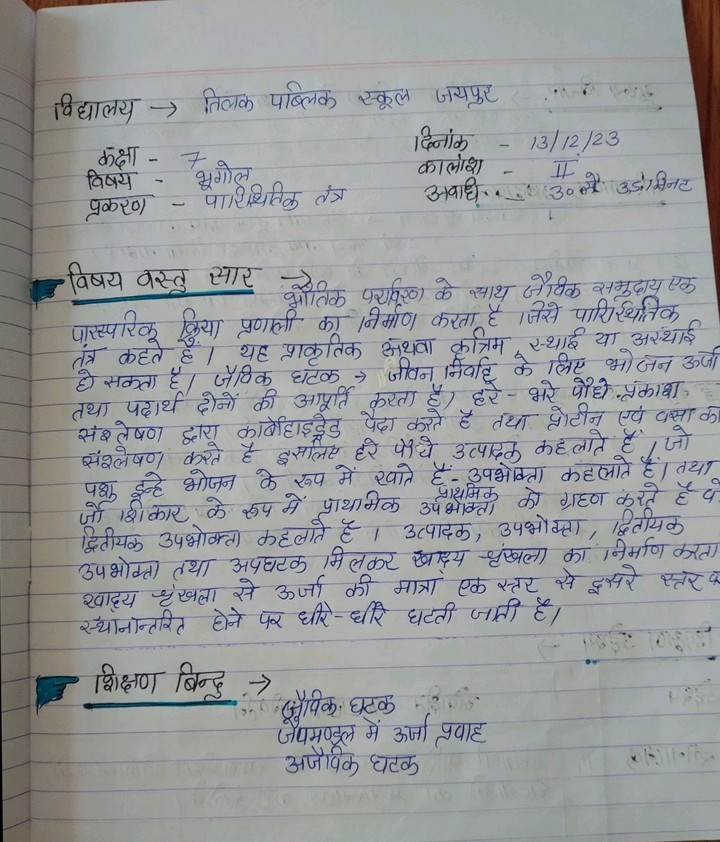 विद्यालय → तिलक पब्लिक स्कूल जयपुर
कक्षा - 7
विषय - भूगोल
प्रकरण - पारिस्थितिक तंत्र
दिनांक - 13/12/23
कालांश - II
अवधि - 30 से 35 मिनट
विषय वस्तु सार →
भौतिक पर्यावरण के साथ जैविक समुदाय एक
पारस्परिक क्रिया प्रणाली का निर्माण करता है। जिसे पारिस्थितिक
तंत्र कहते हैं। यह प्राकृतिक अथवा कृत्रिम, स्थाई या अस्थाई
हो सकता है। जैविक घटक → जीवन निर्वाह के लिए भोजन ऊर्जा
तथा पदार्थ दोनों की आपूर्ति करता है। हरे - भरे पौधे प्रकाश
संश्लेषण द्वारा कार्बोहाइड्रेड पैदा करते है तथा प्रोटीन एवं वसा का
संश्लेषण करते है इसलिए हरे पौधे उत्पादक कहलाते है। जो
पशु इन्हे भोजन के रूप में खाते है - उपभोक्ता कहलाते है। तथा
जो शिकार के रूप में प्राथमिक प्राथमिक उपभोक्ता को ग्रहण करते है वे
द्वितीयक उपभोक्ता कहलाते है। उत्पादक, उपभोक्ता, द्वितीयक
उपभोक्ता तथा अपघटक मिलकर खाद्य श्रृंखला का निर्माण करता
खाद्य श्रृंखला से ऊर्जा की मात्रा एक स्तर से दूसरे स्तर
स्थानान्तरित होने पर धीरे-धीरे घटती जाती है।
शिक्षण बिन्दु →
जैविक घटक
जैवमण्डल में ऊर्जा प्रवाह
अजैविक घटक